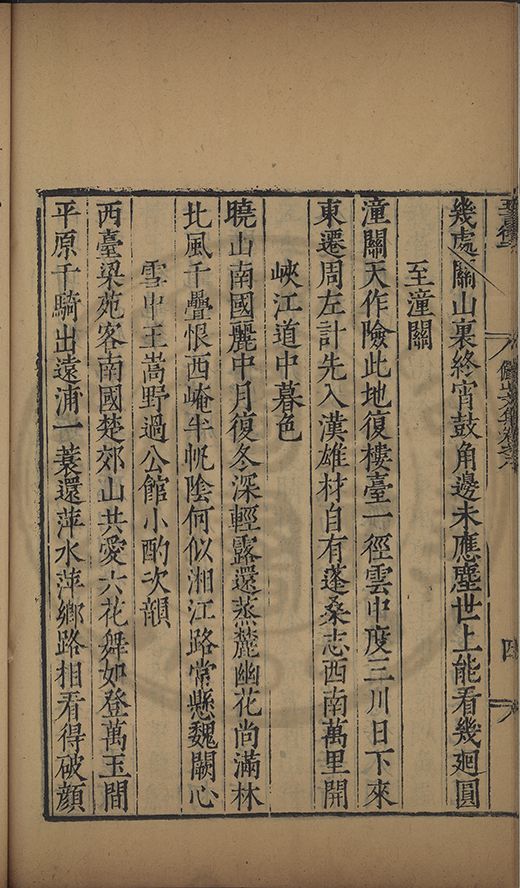 幾處關山裏終宵鼓角邊未應塵世上能看幾廻圓
至潼關
潼關天作險此地復樓臺一徑雲中度三川日下來
東遷周左計先入漢雄材自有蓬桑志西南萬里開
峽江道中暮色
曉山南國麗中月復冬深輕露還蒸麓幽花尚滿林
北風千疊恨西崦半帆陰何似湘江路常懸魏闕心
雪中王嵩野過公館小酌次韻
西臺梁苑客南國楚郊山共愛六花舞如登萬玉間
平原千騎出遠浦一蓑還萍水萍鄉路相看得破顏